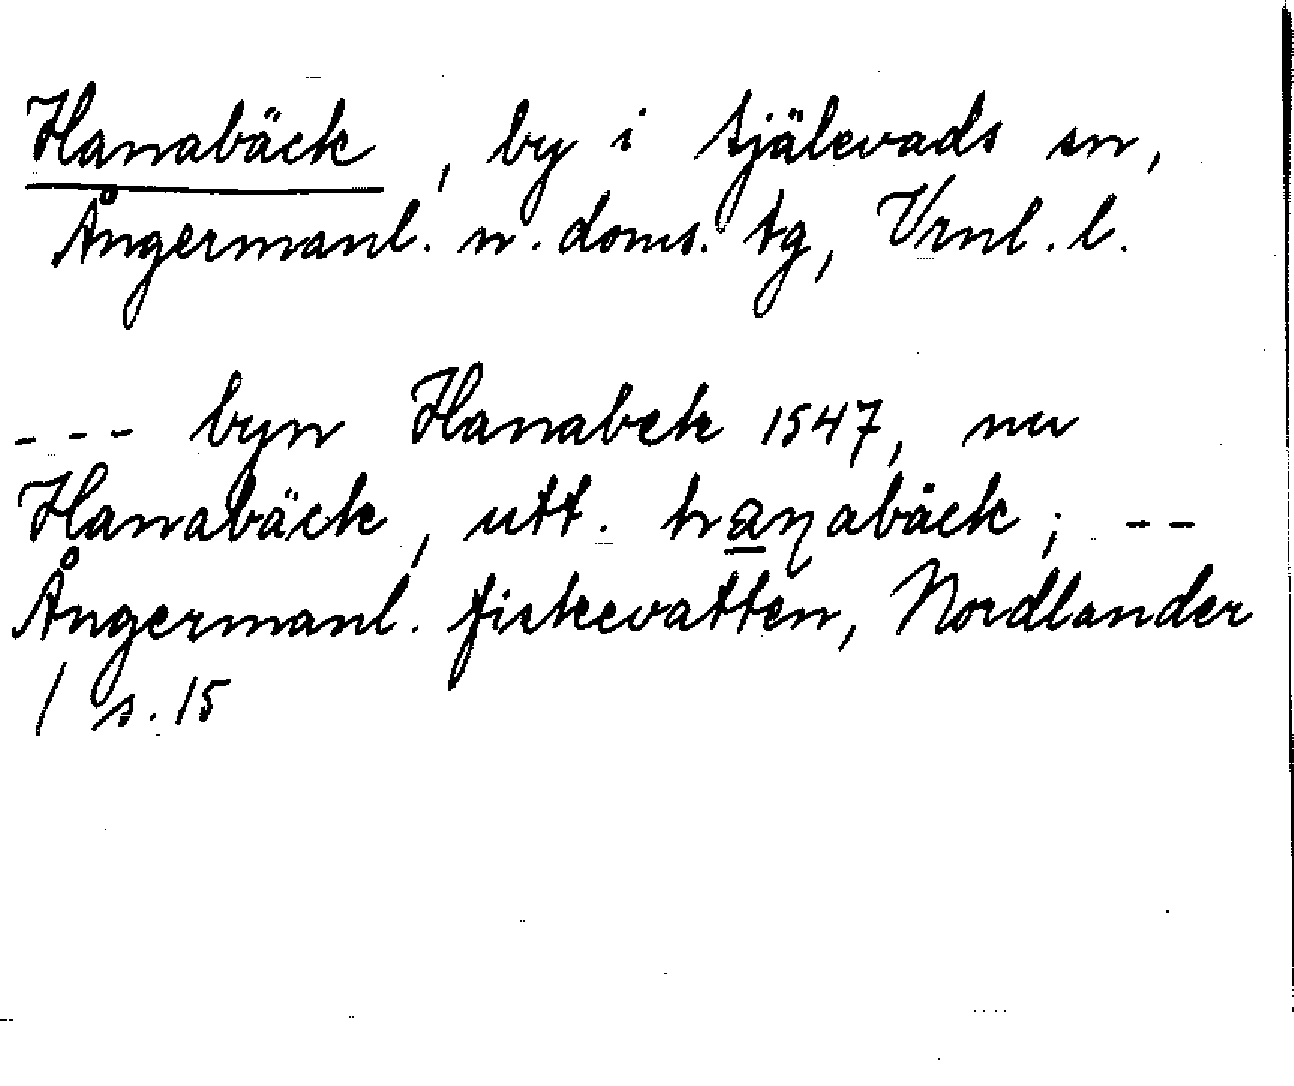 Hanabäck, by i Själevads sn,
Ångermanl. n. doms. tg, Vrnl. l.
--- byn Hanabek 1547, nu
Hanabäck, utt. hanabäck; --
Ångermanl. fiskevatten, Nordlander
/ s. 15